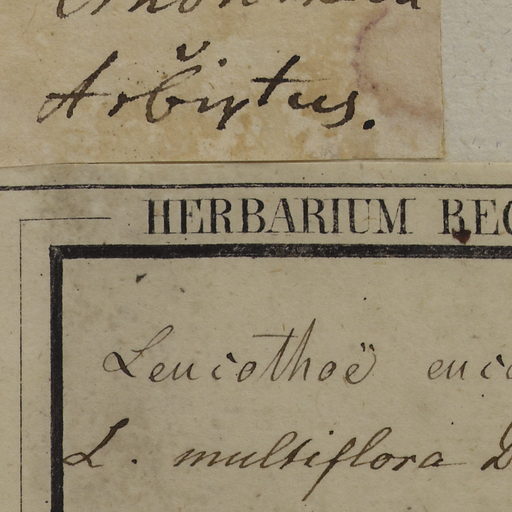 Arbytus.
HERBARIUM REG
Leucothoë euca
L. multiflora D